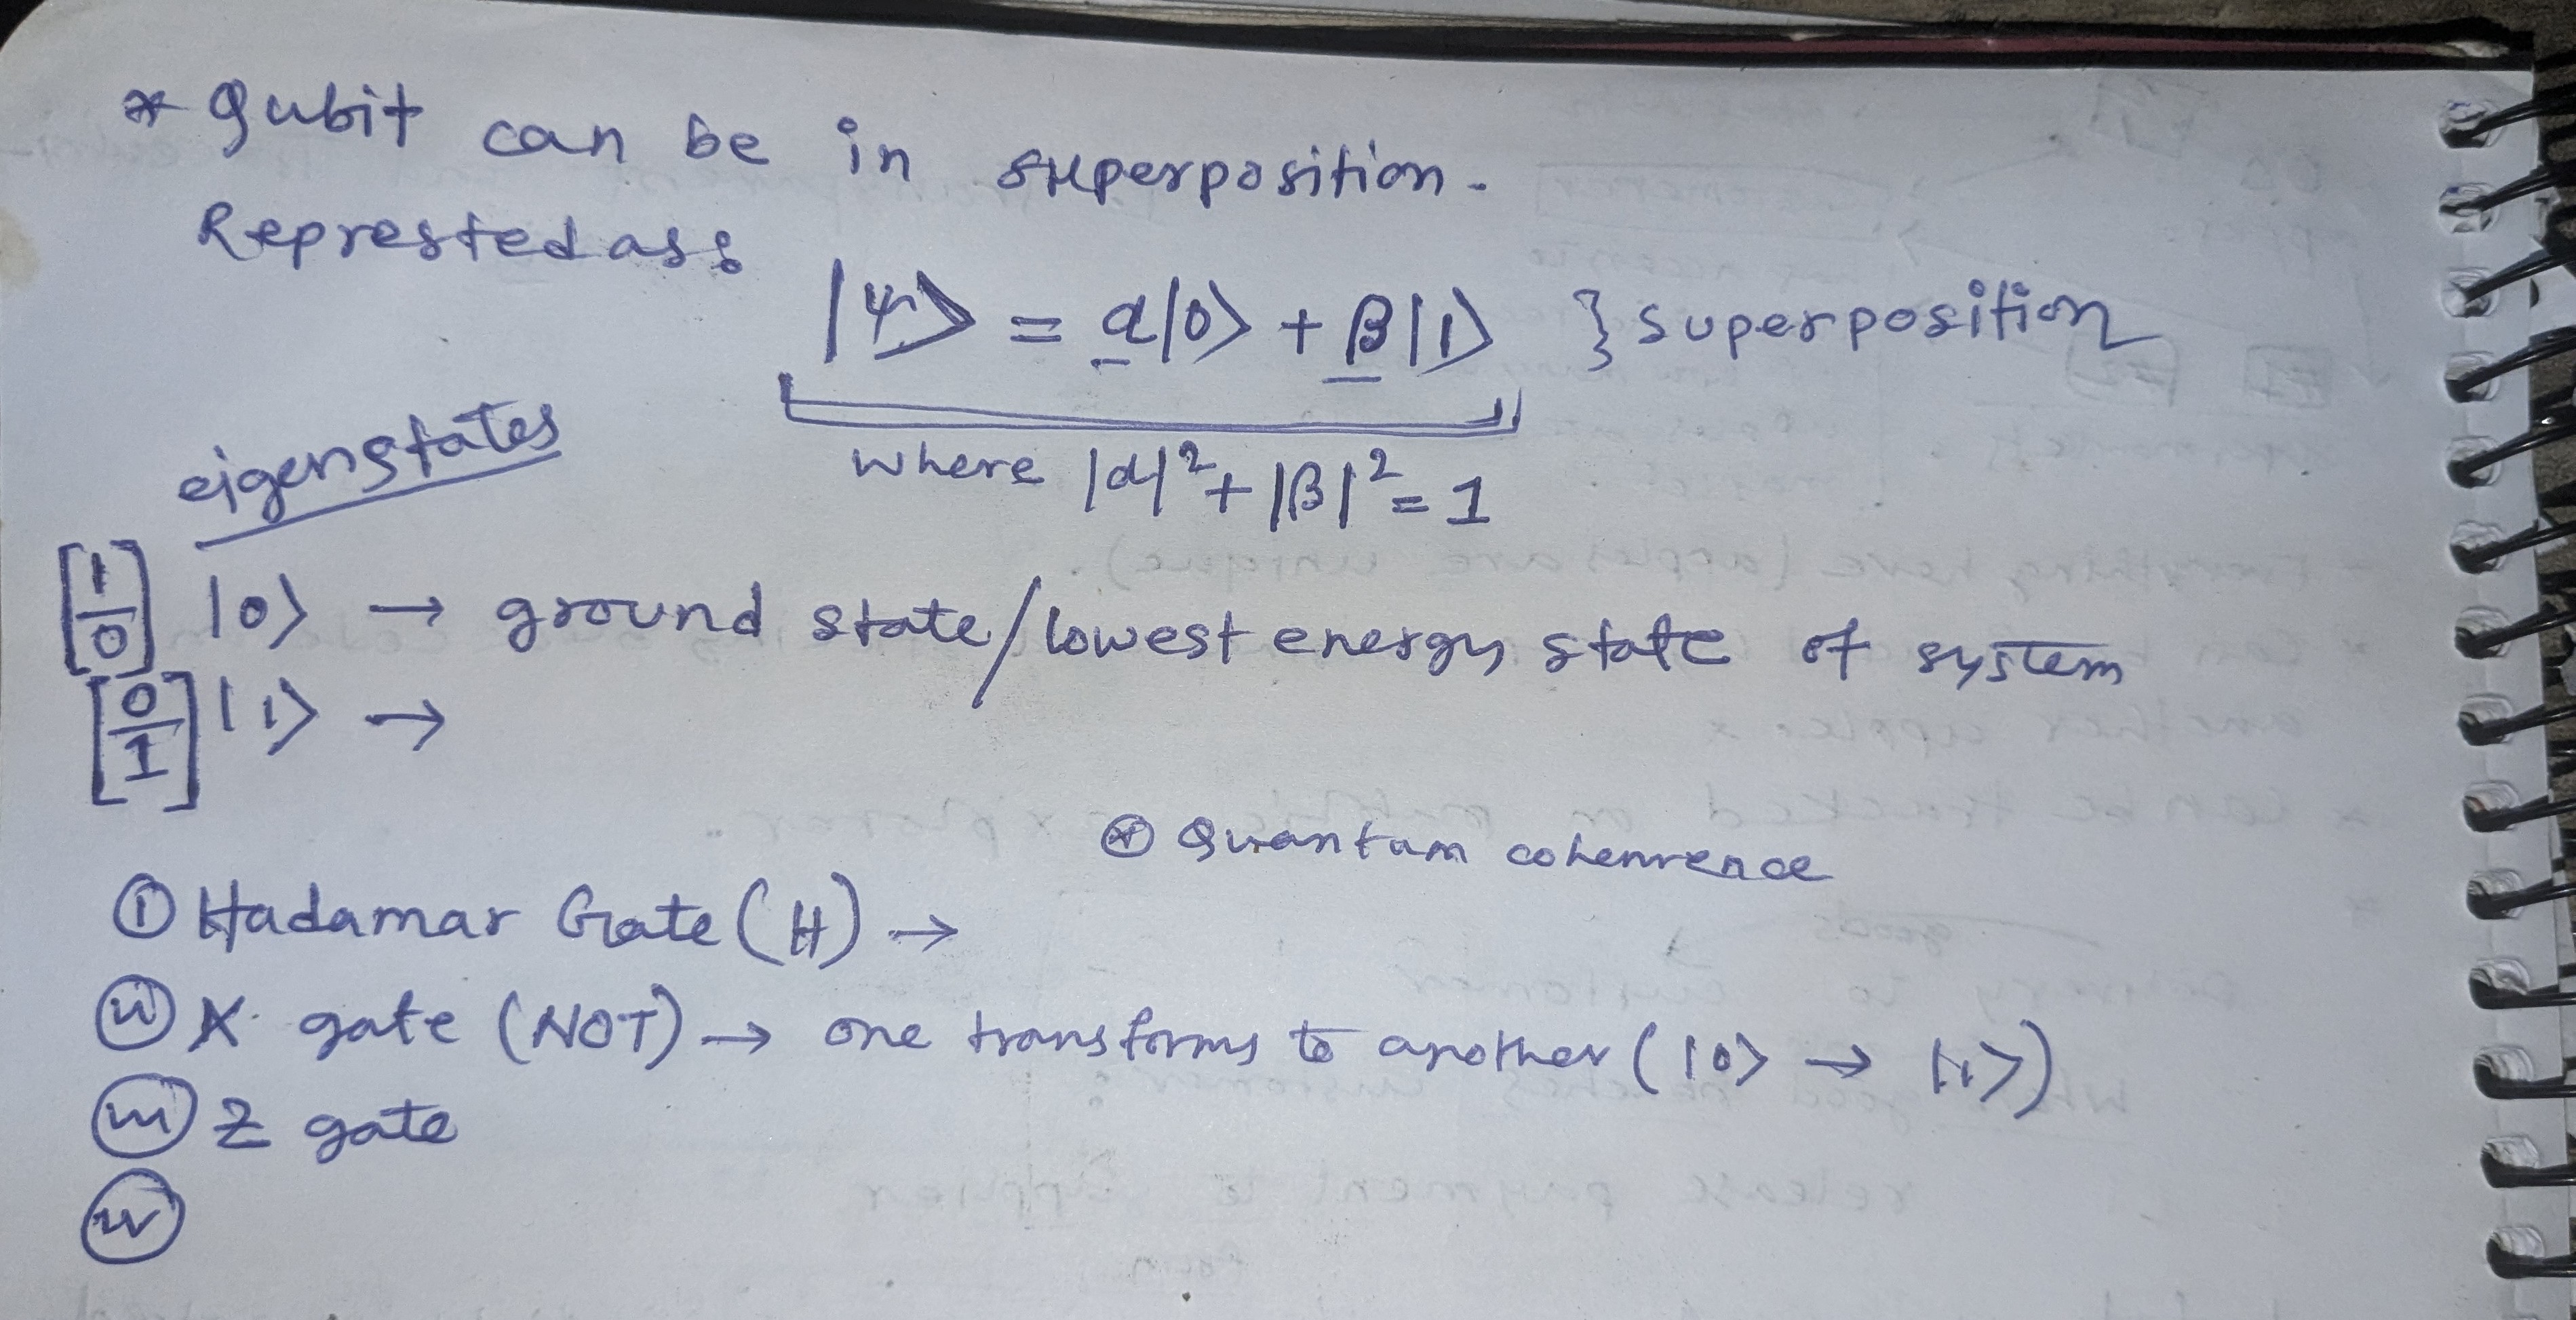 * Qubit can be in superposition.
Represted as:
|ψ> = α|0> + β|1> } superposition
where |α|² + |β|² = 1
eigenstates
[1/0] |0> → ground state/lowest energy state of system
[0/1] |1> →
⊛ Quantum cohenrence
(i) Hadamar Gate (H) →
(ii) X gate (NOT) → one transforms to another (|0> → |1>)
(iii) Z gate
(iv)